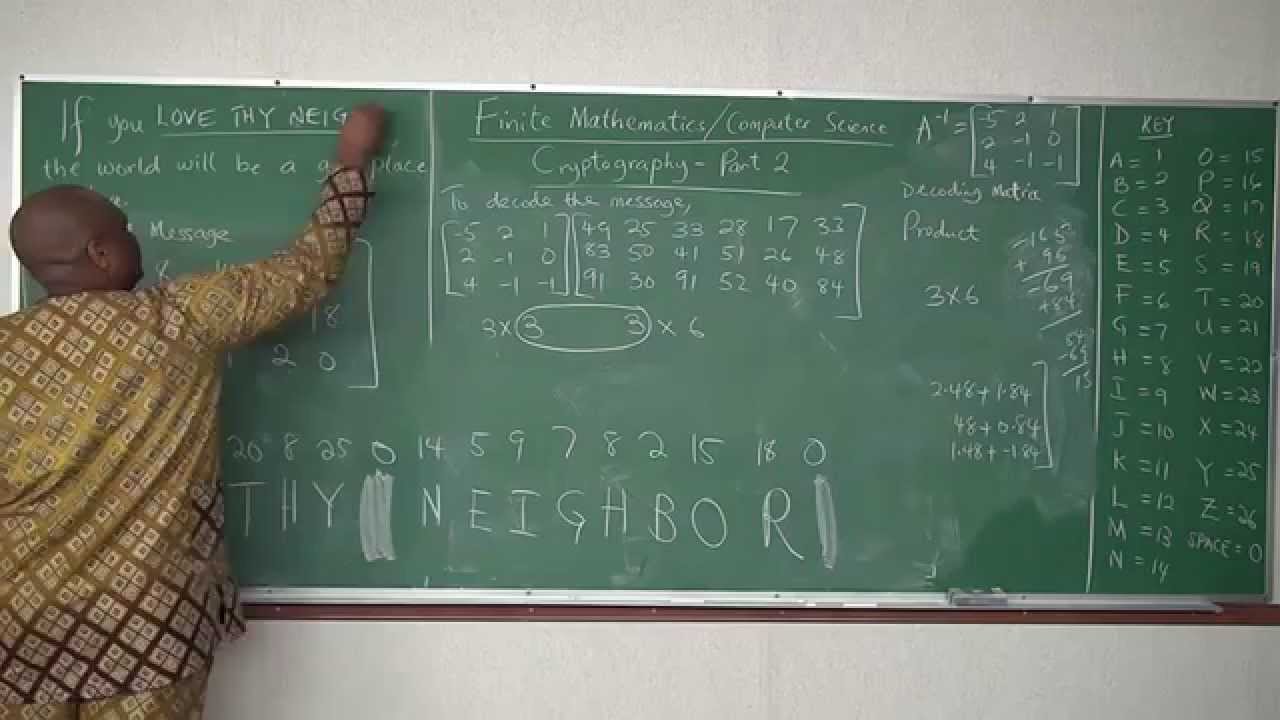 If you LOVE THY NEIG
the world will be a place
Message
8
18
2 0
20 8 25 0 14 5 9 7 8 2 15 18 0
THY NEIGHBOR
Finite Mathematics/Computer Science
Cryptography - Part 2
To decode the message,
-5 2 1 49 25 33 28 17 33
2 -1 0 83 50 41 51 26 48
4 -1 -1 91 30 91 52 40 84
3×3 3×6
A⁻¹ = -5 2 1
2 -1 0
4 -1 -1
Decoding Matrix
Product
3×6
-165
+ 96
-69
+84
15
2·48+1·84
48+0·84
1·48+-1·84
KEY
A = 1 O = 15
B = 2 P = 16
C = 3 Q = 17
D = 4 R = 18
E = 5 S = 19
F = 6 T = 20
G = 7 U = 21
H = 8 V = 22
I = 9 W = 23
J = 10 X = 24
K = 11 Y = 25
L = 12 Z = 26
M = 13 SPACE = 0
N = 14